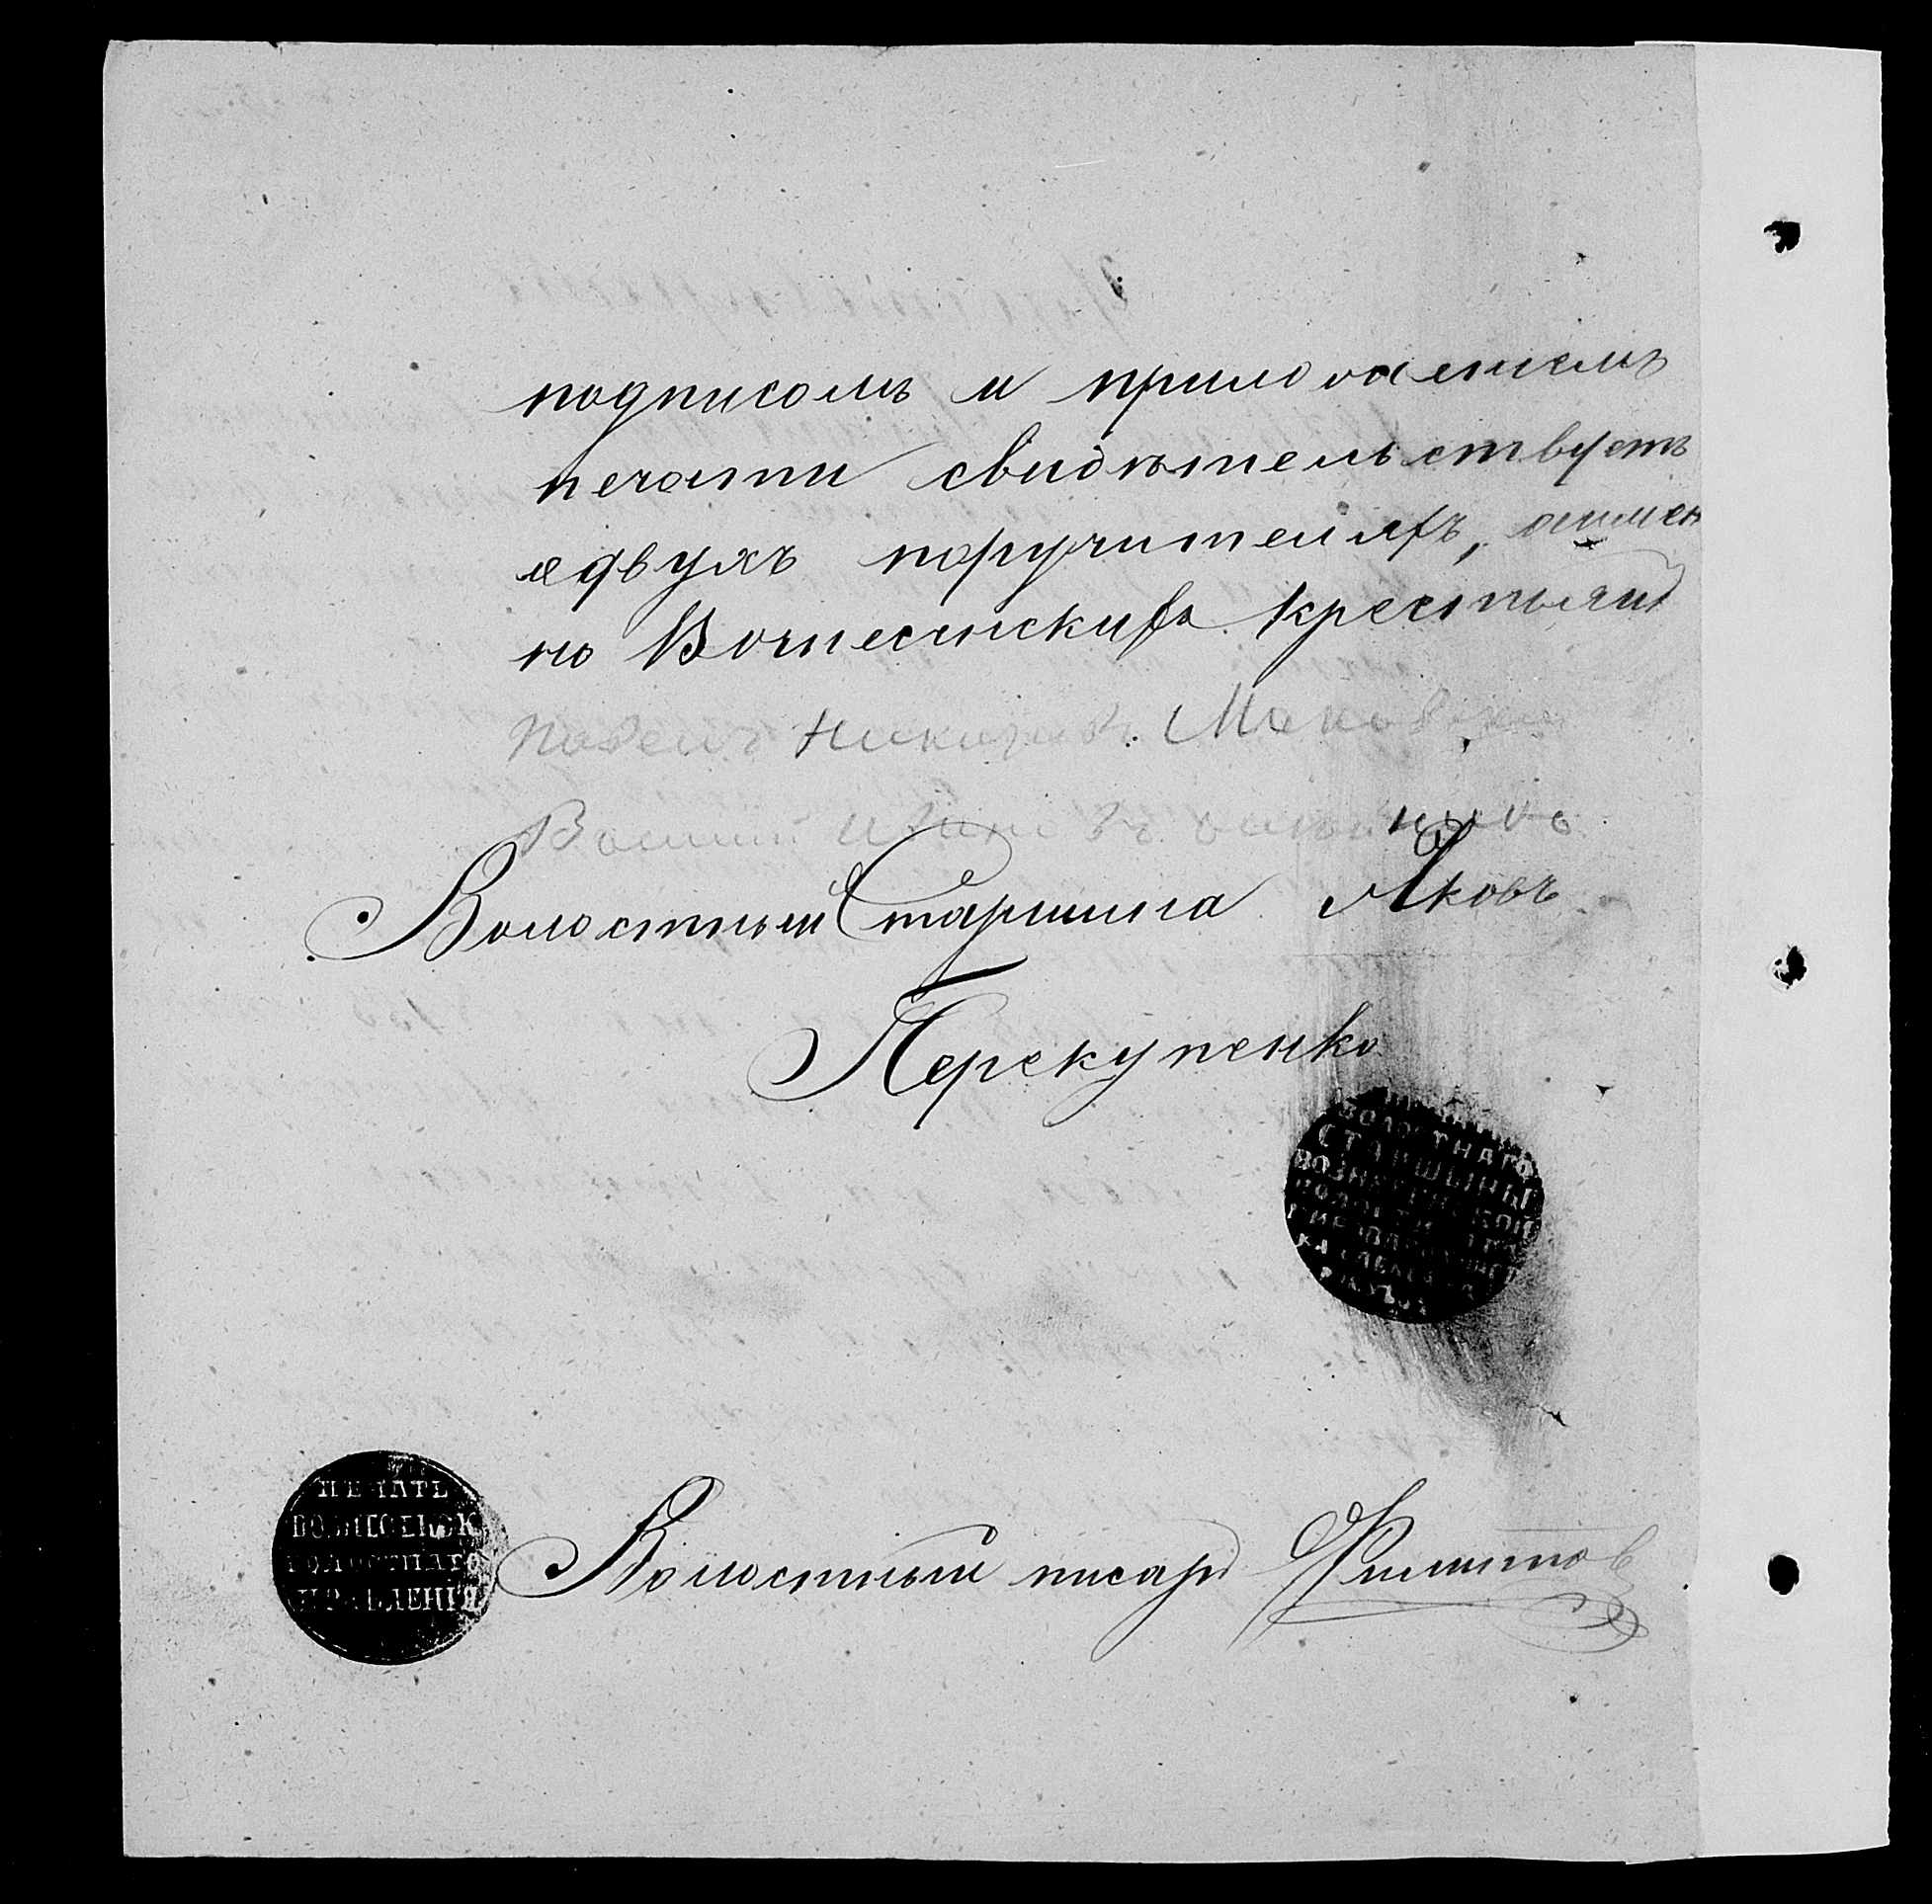 подписомъ и приложениемъ
печати свидѣтельствуетъ
я двухъ поручителяхъ, аимен
но Вознесенскихъ крестьянъ
Павелъ Никифоровъ Маковецки
Василий Иванов
Волостный Старшина Яковъ
Перекупенко
ВОЛОСТНАГО
СТАРШЫНЫ
ВОЗНЕСЕНСКОЙ
ВОЛОСТИ
ПЕЧАТЬ
ВОЗНЕСЕНСК
ВОЛОСТНАГО
ПРАВЛЕНІЯ
Волостный писарь Филиппов